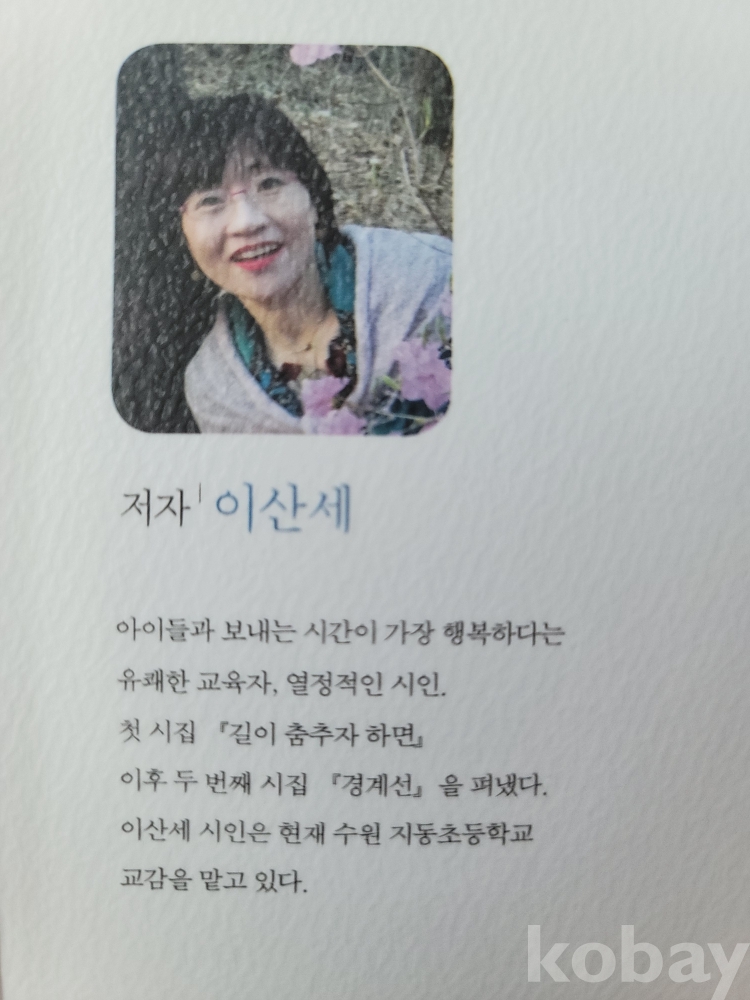 저자 | 이산세
아이들과 보내는 시간이 가장 행복하다는
유쾌한 교육자, 열정적인 시인.
첫 시집 『길이 춤추자 하면』
이후 두 번째 시집 『경계선』을 펴냈다.
이산세 시인은 현재 수원 지동초등학교
교감을 맡고 있다.
kobay